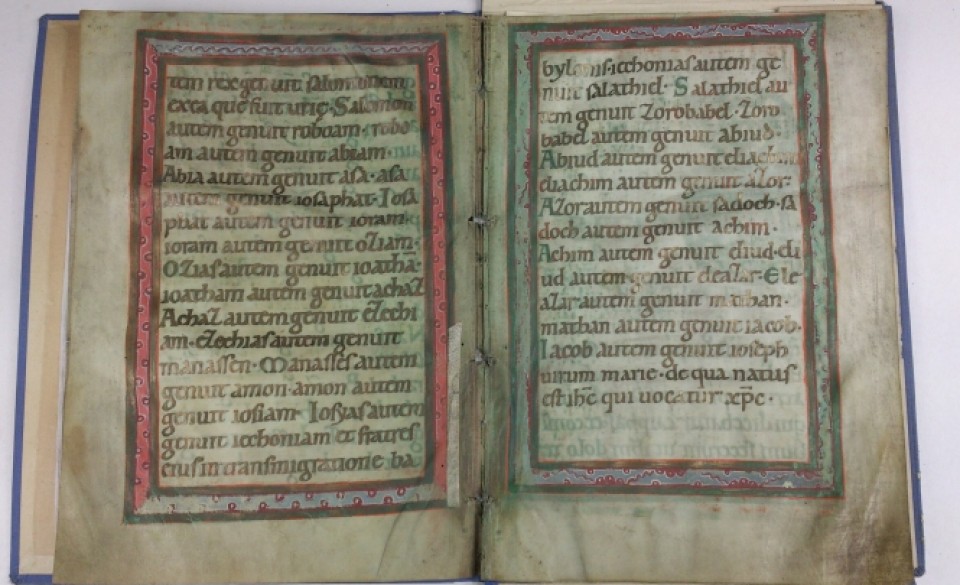 tem rex gen uit salomonem
ex ea que fuit urie. Salomon
autem genuit roboam. robo
am autem genuit abiam.
Abia autem genuit asa. asa
autem genuit iosaphat. Iosa
phat autem genuit ioram.
ioram autem genuit oziam.
Ozias autem genuit ioathā.
ioatham autem genuit achaz
Achaz autem genuit ezechi
am. ezechias autem genuit
manassen. Manasses autem
genuit amon. amon autem
genuit iosiam. Iosias autem
genuit iechoniam et fratres
eius in transmigratione ba
bylonis. iechonias autem ge
nuit salathiel. Salathiel au
tem genuit zorobabel. Zoro
babel autem genuit abiud.
Abiud autem genuit eliachim
eliachim autem genuit azor.
Azor autem genuit sadoch. sa
doch autem genuit achim.
Achim autem genuit eliud. eli
ud autem genuit eleazar. Ele
azar autem genuit mathan.
mathan autem genuit iacob.
Iacob autem genuit ioseph
uirum marie. de qua natus
est ihc qui uocatur xpc.